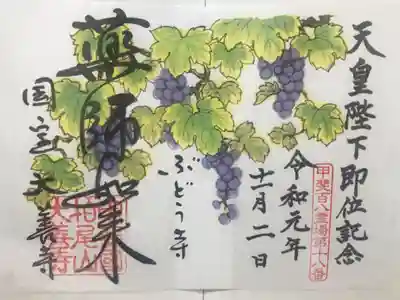 天皇陛下即位記念
甲斐百八霊場第十八番
令和元年
十一月二日
ぶどう寺
薬師如来
国宝 大善寺
柏尾山
大善寺